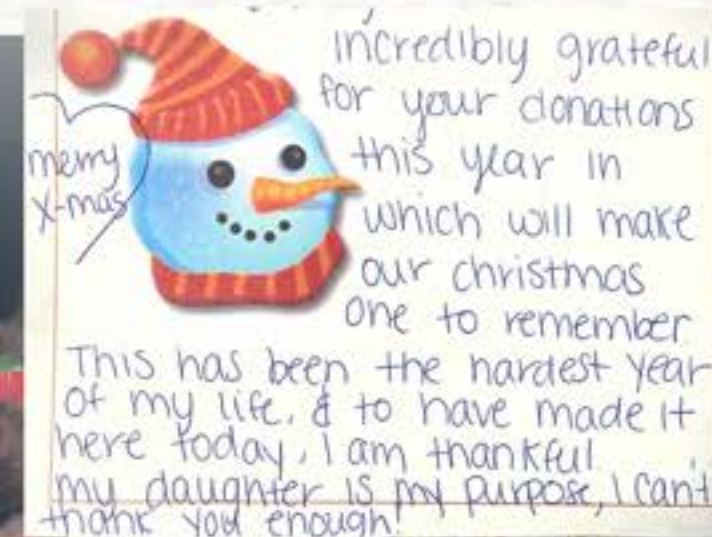 incredibly grateful
for your donations
this year in
which will make
our christmas
one to remember
merry
x-mas
This has been the hardest year
of my life, & to have made it
here today, I am thankful
my daughter is my purpose, I can't
thank you enough!